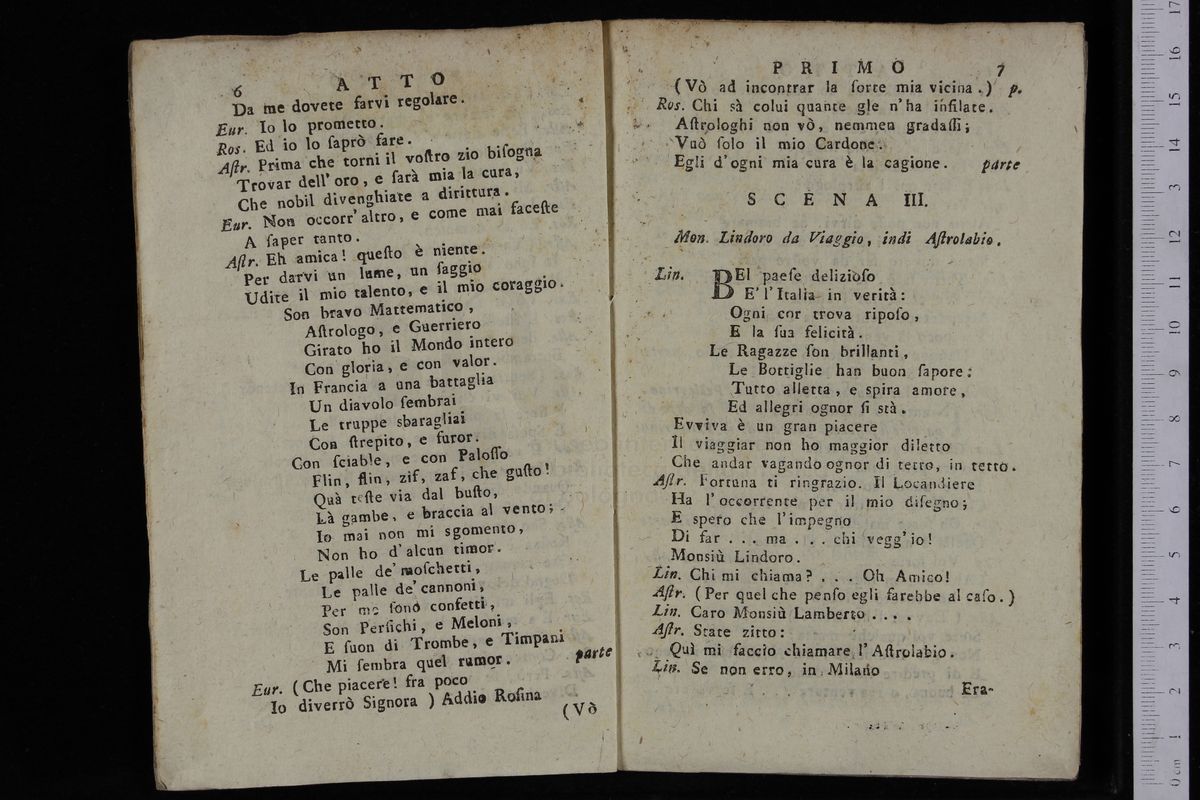 6 ATTO
Da me dovete farvi regolare.
Eur. Io lo prometto.
Ros. Ed io lo ſaprò fare.
Aſtr. Prima che torni il voſtro zio biſogna
Trovar dell' oro, e ſarà mia la cura,
Che nobil divenghiate a dirittura.
Eur. Non occorr' altro, e come mai faceſte
A ſaper tanto.
Aſtr. Eh amica! queſto è niente.
Per darvi un lume, un ſaggio
Udite il mio talento, e il mio coraggio.
Son bravo Mattematico,
Aſtrologo, e Guerriero
Girato ho il Mondo intero
Con gloria, e con valor.
In Francia a una battaglia
Un diavolo ſembrai
Le truppe sbaragliai
Con ſtrepito, e furor.
Con ſciable, e con Paloſſo
Flin, flin, zif, zaf, che guſto!
Quà teſte via dal buſto,
Là gambe, e braccia al vento;
Io mai non mi sgomento,
Non ho d'alcun timor.
Le palle de' moſchetti,
Le palle de' cannoni,
Per me ſono confetti,
Son Perſichi, e Meloni,
E ſuon di Trombe, e Timpani
Mi ſembra quel rumor. parte
Eur. (Che piacere! fra poco
Io diverrò Signora ) Addio Roſina
(Vò
PRIMO 7
(Vò ad incontrar la ſorte mia vicina.) p.
Ros. Chi sà colui quante gle n'ha infilate.
Aſtrologhi non vò, nemmen gradaſſi;
Vuò ſolo il mio Cardone.
Egli d'ogni mia cura è la cagione. parte
SCENA III.
Mon. Lindoro da Viaggio, indi Aſtrolabio.
Lin. BEl paeſe delizioſo
E' l'Italia in verità:
Ogni cor trova ripoſo,
E la ſua felicità.
Le Ragazze ſon brillanti,
Le Bottiglie han buon ſapore:
Tutto alletta, e spira amore,
Ed allegri ognor ſi stà.
Evviva è un gran piacere
Il viaggiar non ho maggior diletto
Che andar vagando ognor di tetto, in tetto.
Aſtr. Fortuna ti ringrazio. Il Locandiere
Ha l'occorrente per il mio diſegno;
E spero che l'impegno
Di far . . . ma . . . chi vegg'io!
Monsiù Lindoro.
Lin. Chi mi chiama? . . . Oh Amico!
Aſtr. (Per quel che penſo egli ſarebbe al caſo.)
Lin. Caro Monsiù Lamberto . . . .
Aſtr. State zitto:
Quì mi faccio chiamare l'Aſtrolabio.
Lin. Se non erro, in Milano
Era-